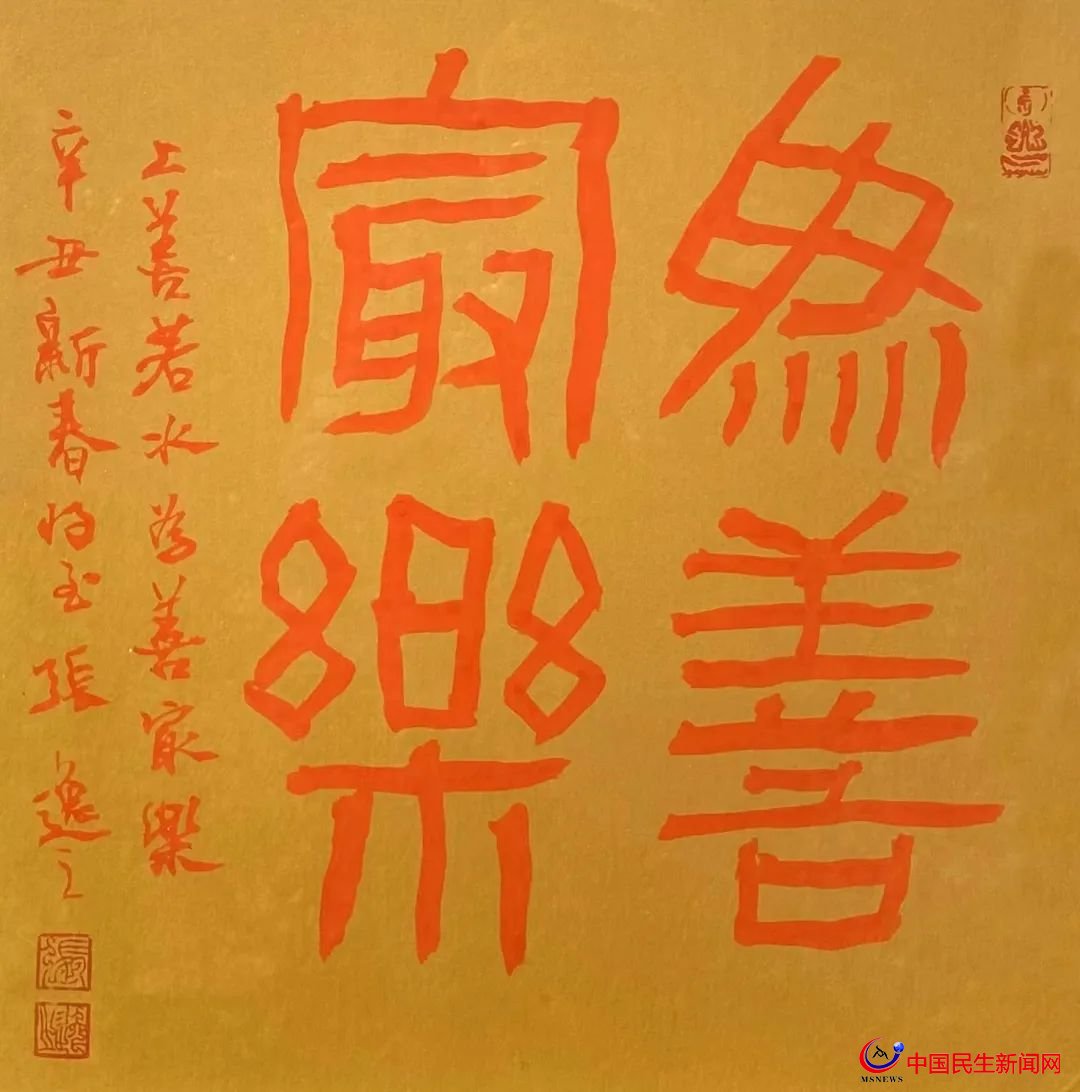 為善
最樂
上善若水為善最樂
辛丑新春将至張逸之
MSNEWS
中国民生新闻网